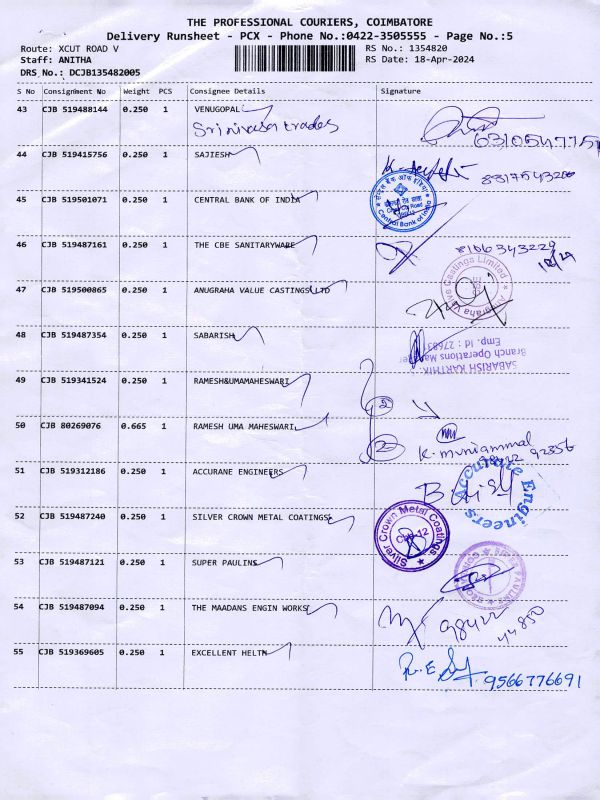 THE PROFESSIONAL COURIERS, COIMBATORE
Delivery Runsheet - PCX - Phone No.:0422-3505555 - Page No.:5
Route: XCUT ROAD V
RS No.: 1354820
Staff: ANITHA
RS Date: 18-Apr-2024
DRS No.: DCJB135482005
S No Consignment No Weight PCS Consignee Details Signature
43 CJB 519488144 0.250 1 VENUGOPAL
Srinivasa trades
44 CJB 519415756 0.250 1 SAJIESH
8317543200
45 CJB 519501071 0.250 1 CENTRAL BANK OF INDIA
Central Bank of India
46 CJB 519487161 0.250 1 THE CBE SANITARYWARE
47 CJB 519500865 0.250 1 ANUGRAHA VALUE CASTINGS LTD
Anugraha Valve Castings Limited
48 CJB 519487354 0.250 1 SABARISH
SABARISH KARTHIK
Branch Operations
Emp. Id : 27683
49 CJB 519341524 0.250 1 RAMESH&UMAMAHESWARI
2
50 CJB 80269076 0.665 1 RAMESH UMA MAHESWARI
2
K. muniammal
98422 92356
51 CJB 519312186 0.250 1 ACCURANE ENGINEERS
Accurate Engineers
52 CJB 519487240 0.250 1 SILVER CROWN METAL COATINGS
Silver Crown Metal Coatings
53 CJB 519487121 0.250 1 SUPER PAULINS
54 CJB 519487094 0.250 1 THE MAADANS ENGIN WORKS
98422
44850
55 CJB 519369605 0.250 1 EXCELLENT HELTH
9566776691